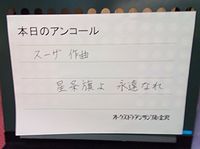 本日のアンコール
スーザ 作曲
星条旗よ 永遠なれ
オーケストラ・アンサンブル金沢